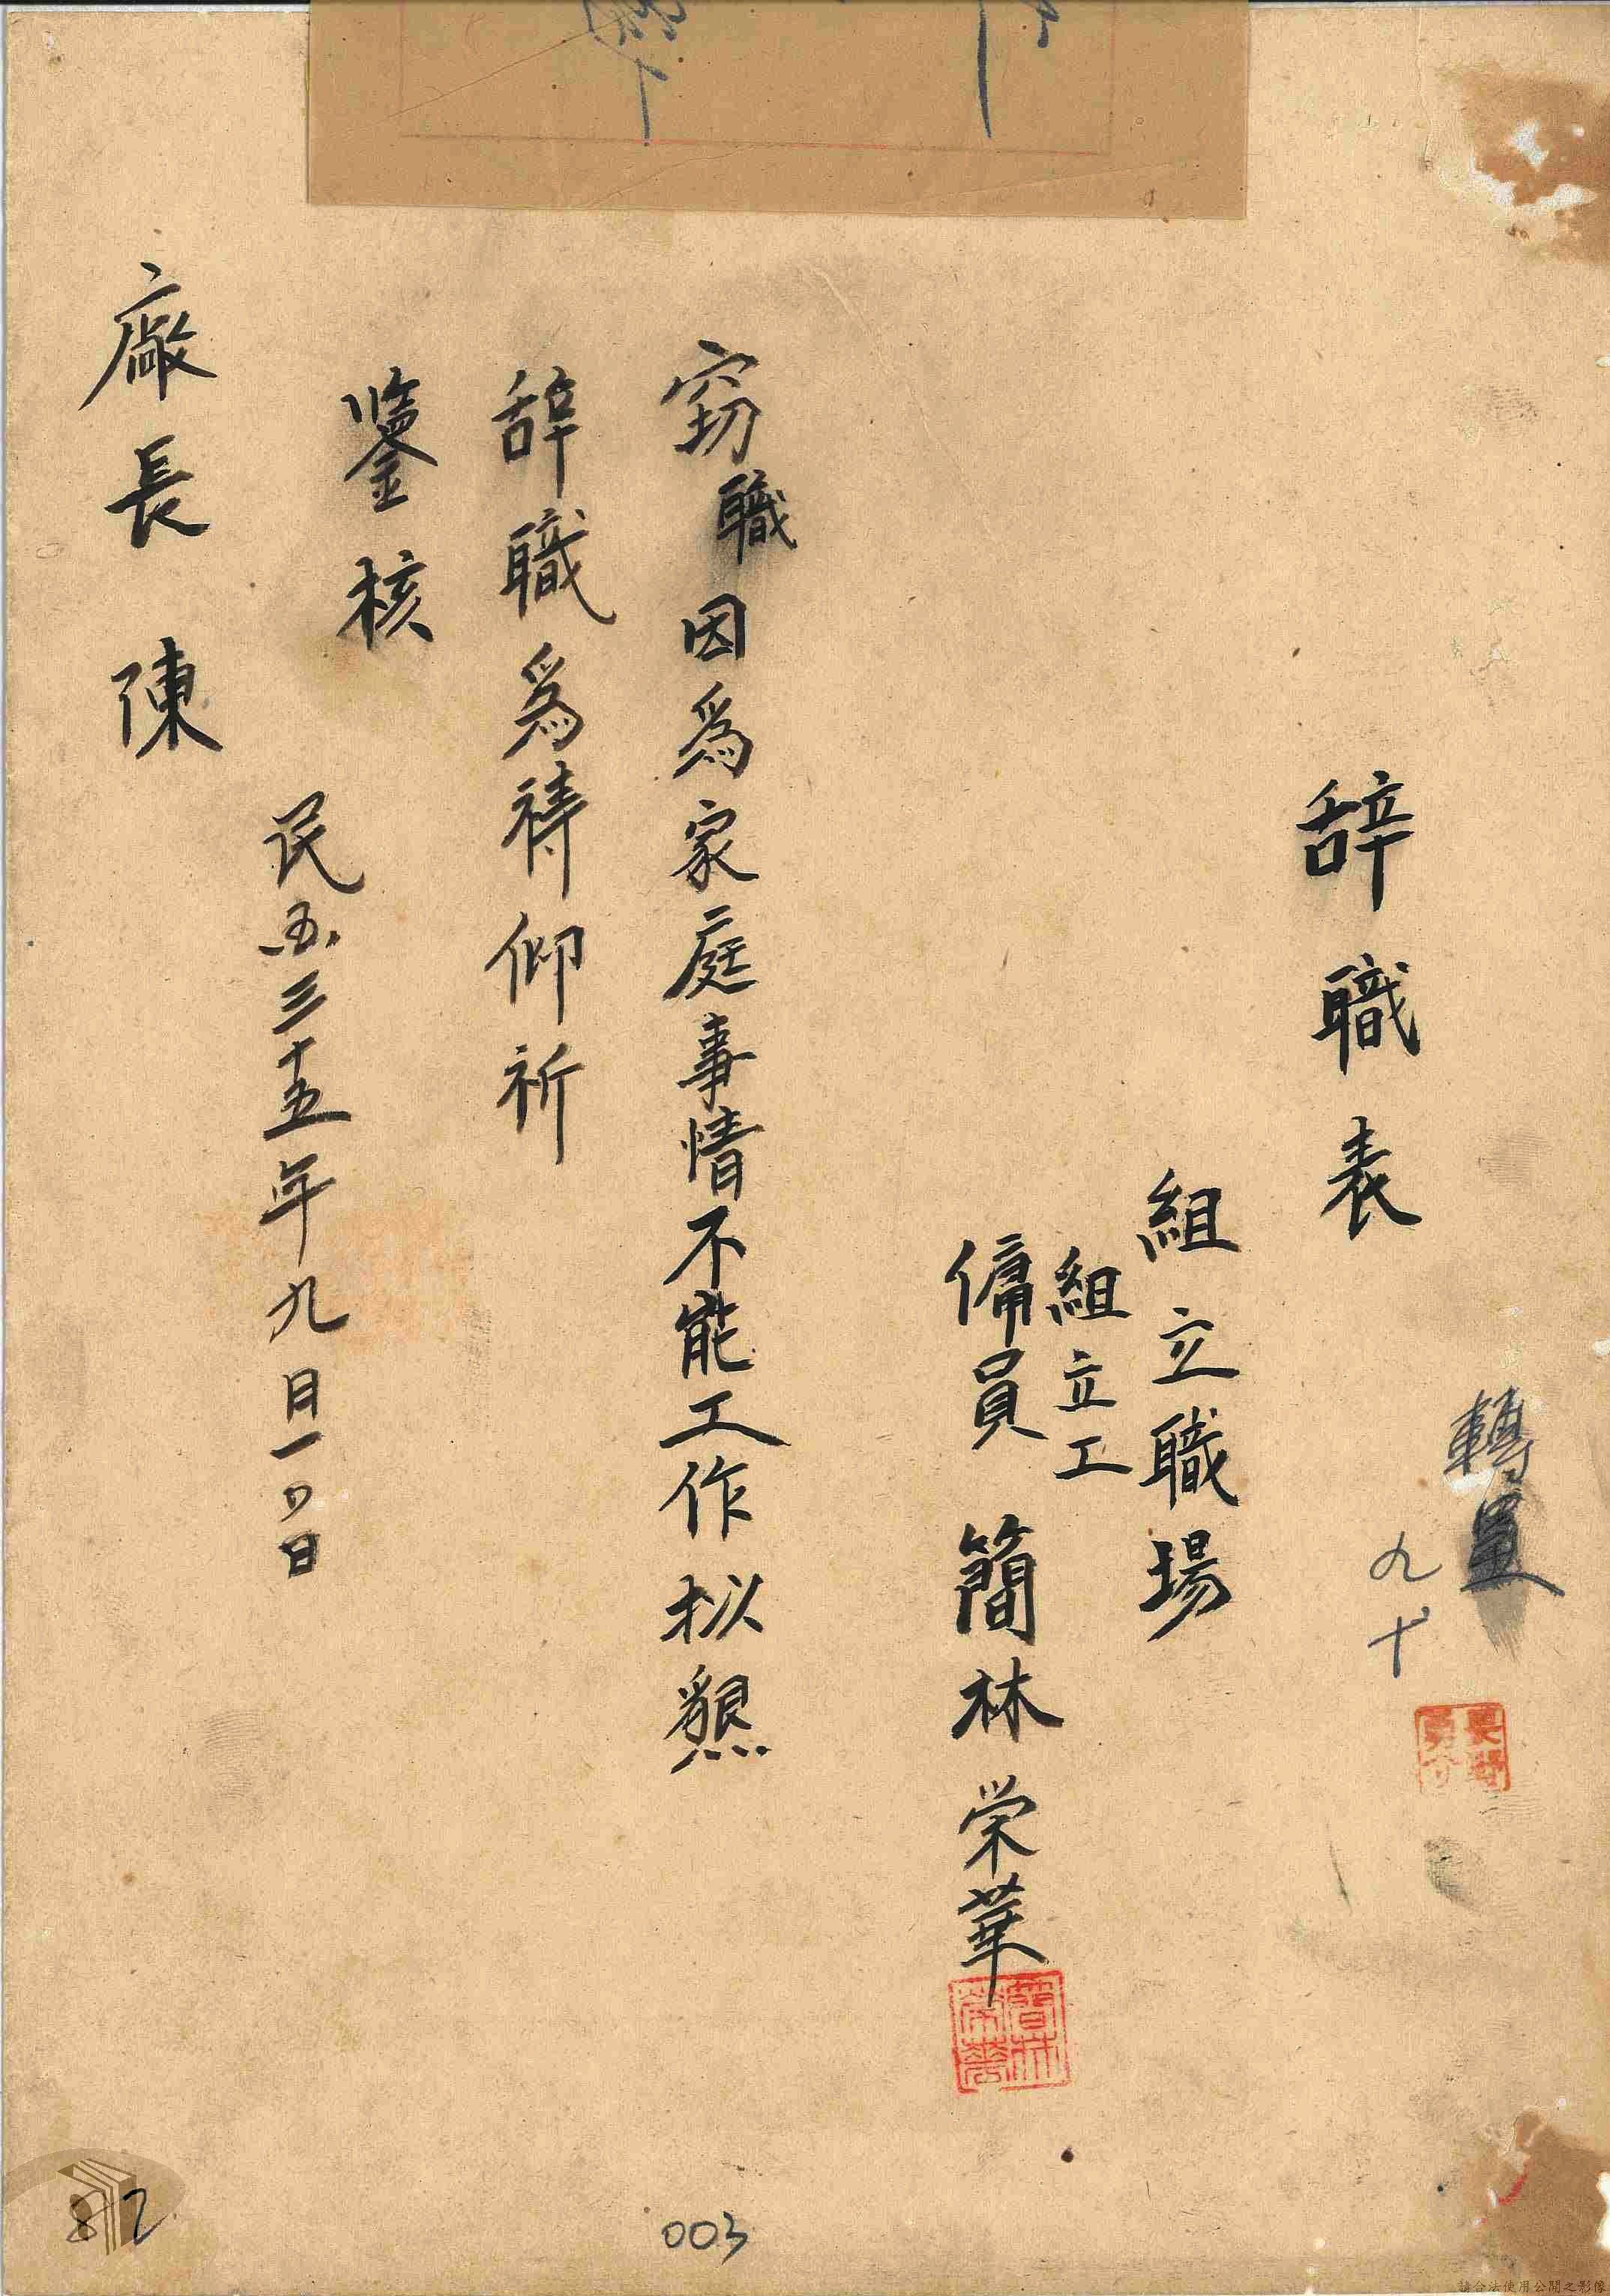 辞職表
轉呈
九
十
組立職場
組立工
傭員 簡林荣華
簡林
荣華
窃職因為家庭事情不能工作拟懇
辞職為禱仰祈
鑒核
民三十五年九月一日
廠長陳
003
82
請合法使用公開之影像